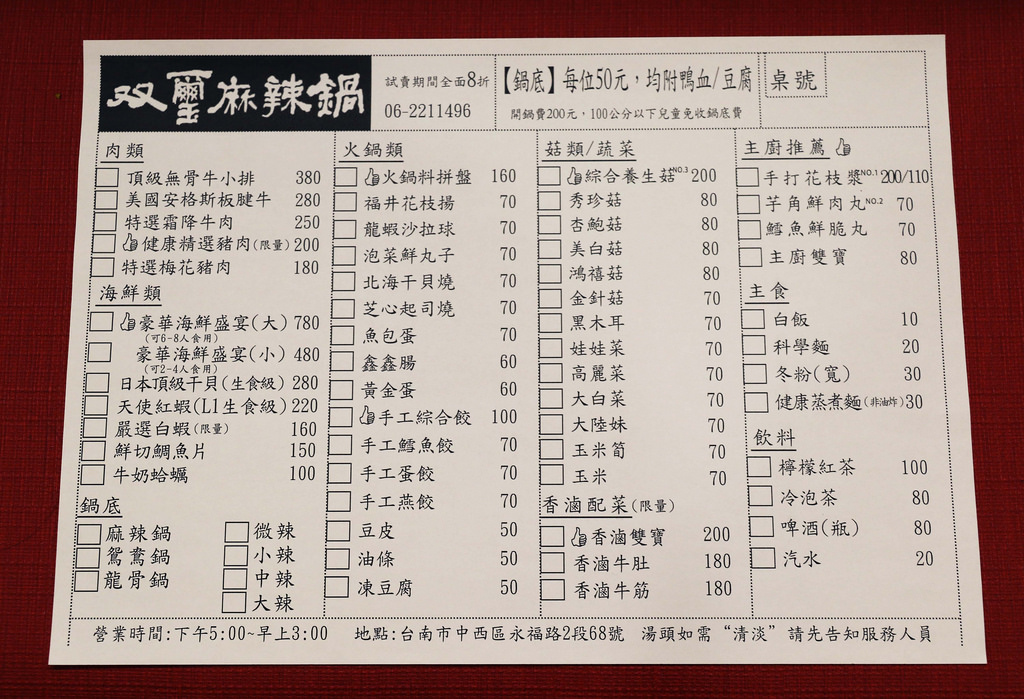 双璽麻辣鍋
試賣期間全面8折
06-2211496
【鍋底】每位50元，均附鴨血/豆腐
開鍋費200元，100公分以下兒童免收鍋底費
桌號
肉類
頂級無骨牛小排 380
美國安格斯板腱牛 280
特選霜降牛肉 250
健康精選豬肉(限量) 200
特選梅花豬肉 180
海鮮類
豪華海鮮盛宴(大) 780
(可6-8人食用)
豪華海鮮盛宴(小) 480
(可2-4人食用)
日本頂級干貝(生食級) 280
天使紅蝦(L1生食級) 220
嚴選白蝦(限量) 160
鮮切鯛魚片 150
牛奶蛤蠣 100
鍋底
麻辣鍋
鴛鴦鍋
龍骨鍋
微辣
小辣
中辣
大辣
火鍋類
火鍋料拼盤 160
福井花枝揚 70
龍蝦沙拉球 70
泡菜鮮丸子 70
北海干貝燒 70
芝心起司燒 70
魚包蛋 70
鑫鑫腸 60
黃金蛋 60
手工綜合餃 100
手工鱈魚餃 70
手工蛋餃 70
手工燕餃 70
豆皮 50
油條 50
凍豆腐 50
菇類/蔬菜
綜合養生菇NO.3 200
秀珍菇 80
杏鮑菇 80
美白菇 80
鴻禧菇 80
金針菇 70
黑木耳 70
娃娃菜 70
高麗菜 70
大白菜 70
大陸妹 70
玉米筍 70
玉米 70
香滷配菜(限量)
香滷雙寶 200
香滷牛肚 180
香滷牛筋 180
主廚推薦
手打花枝漿NO.1 200/110
芋角鮮肉丸NO.2 70
鱈魚鮮脆丸 70
主廚雙寶 80
主食
白飯 10
科學麵 20
冬粉(寬) 30
健康蒸煮麵(非油炸) 30
飲料
檸檬紅茶 100
冷泡茶 80
啤酒(瓶) 80
汽水 20
營業時間:下午5:00~早上3:00 地點:台南市中西區永福路2段68號 湯頭如需“清淡”請先告知服務人員